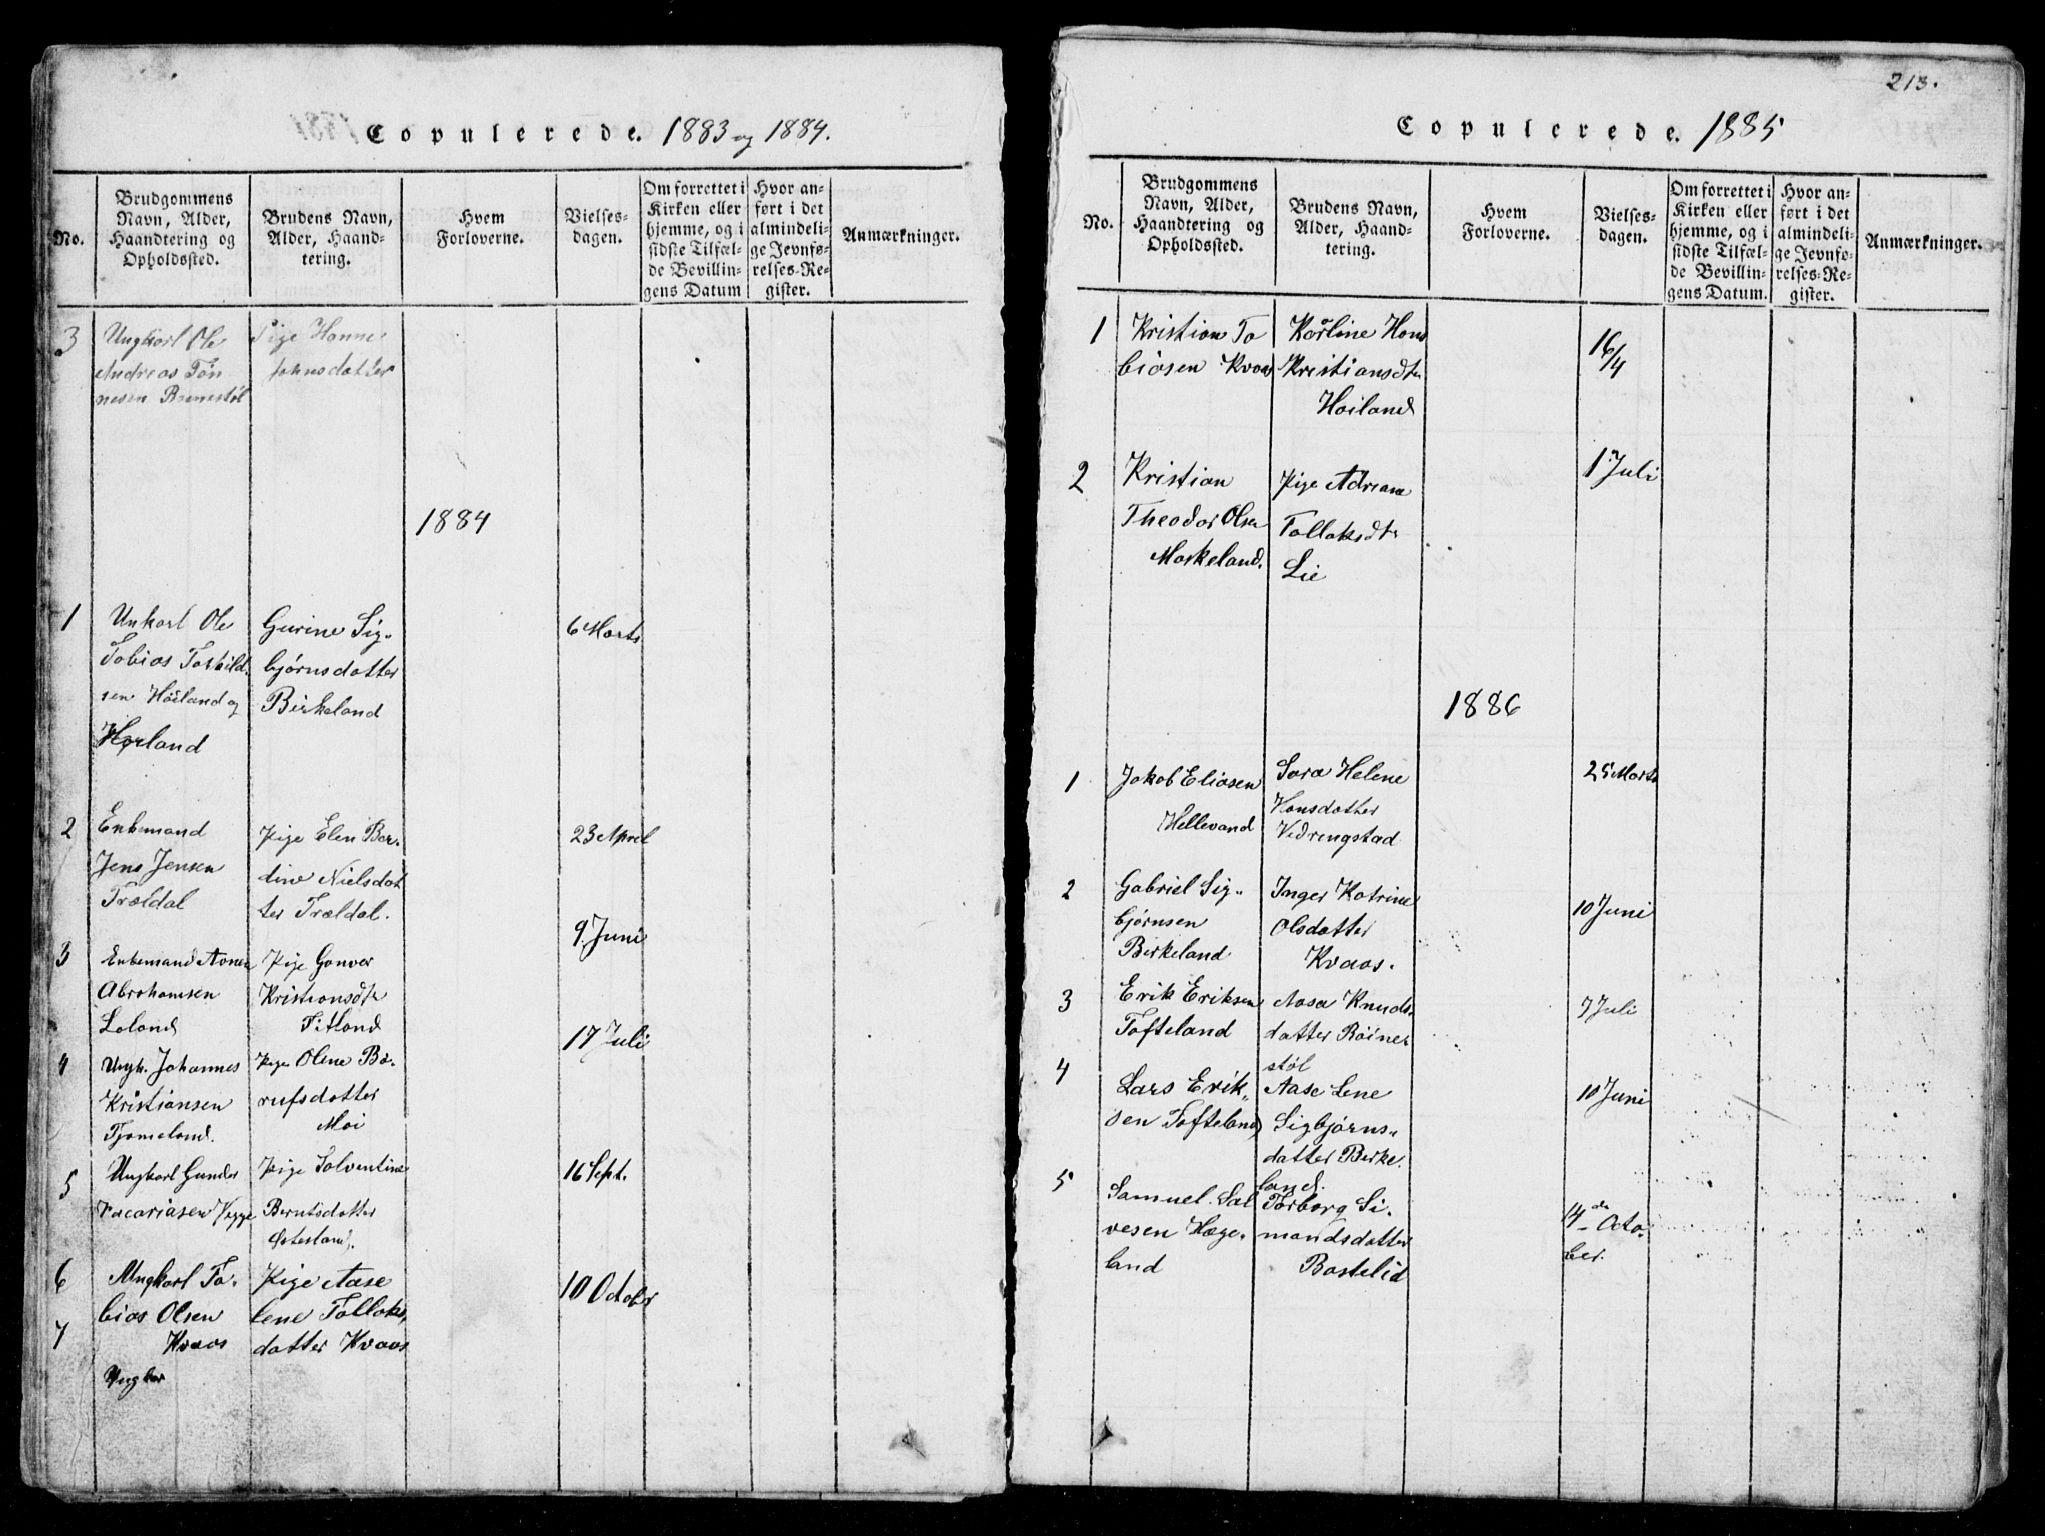 Copulerede. 1883 og 1884.
No.
Brudgommens
Navn, Alder,
Haandtering og
Opholdssted.
Brudens Navn,
Alder, Haand-
tering.
Hvem
Forloverne.
Vielses-
dagen.
Om forrettet i
Kirken eller
hjemme, og i
sidste Tilfæl-
de Bevillin-
gens Datum
Hvor an-
ført i det
almindeli-
ge Jevnfø-
relses-Re-
gister.
Anmærkninger.
3
Ungkarl Ole
Andreas Tön
nesen
Pige Hanne
Johnsdatter
1884
1
Unkarl Ole
Tobias Torkild-
sen Høiland og
Hørland
Gurine Sig-
bjørnsdatter
Birkeland
6 Marts
2
Enkemand
Jens Jensen
Trældal
Pige Elen Ber-
dine Nielsdat
ter Trældal.
23 April
3
Enkemand Aanen
Abrahamsen
Loland
Pige Gonvor
Kristiansdtr
Fitland
9. Juni
4
Ungk. Johannes
Kristiansen
Tjomeland.
Pige Oline Bo-
rufsdatter
Moi
17 Juli
5
Ungkarl Gunder
Zacariasen
Pige Solventine
Berntsdatter
16 Sept.
6
Ungkarl To-
bias Olsen
Kvaas
Pige Aase
Lene Tollaks,
datter Kvaas
10 October
7
Ungkar
213.
Copulerede. 1885
No.
Brudgommens
Navn, Alder,
Haandtering og
Opholdssted.
Brudens Navn,
Alder, Haand-
tering.
Hvem
Forloverne.
Vielses-
dagen.
Om forrettet i
Kirken eller
hjemme, og i
sidste Tilfæl-
de Bevillin-
gens Datum.
Hvor an-
ført i det
almindeli-
ge Jevnfø-
relses-Re-
gister.
Anmærkninger.
1
Kristian To
biasen Kvaas
Karline Hans
Kristiansdtr
Høiland
16/4
2
Kristian
Theodor Olsen
Moskeland.
Pige Adriane
Tollaksdtr
Lie
1 Juli
1886
1
Jakob Eliasen
Hellevand
Sara Helene
Hansdatter
Vedringstad
25 Marts
2
Gabriel Sig-
bjørnsen
Birkeland
Inger Katrine
Olsdatter
Kvaas.
10 Juni
3
Erik Eriksen
Tofteland
Aasa Knuds-
datter Røine-
støl
7 Juli
4
Lars Erik-
sen Tofteland
Aase Lene
Sigbjørns-
datter Birke-
land.
10 Juni
5
Samuel Sal
vesen Hæge-
land
Torborg Si-
mondsdatter
Bostelid
14de Octo-
ber.